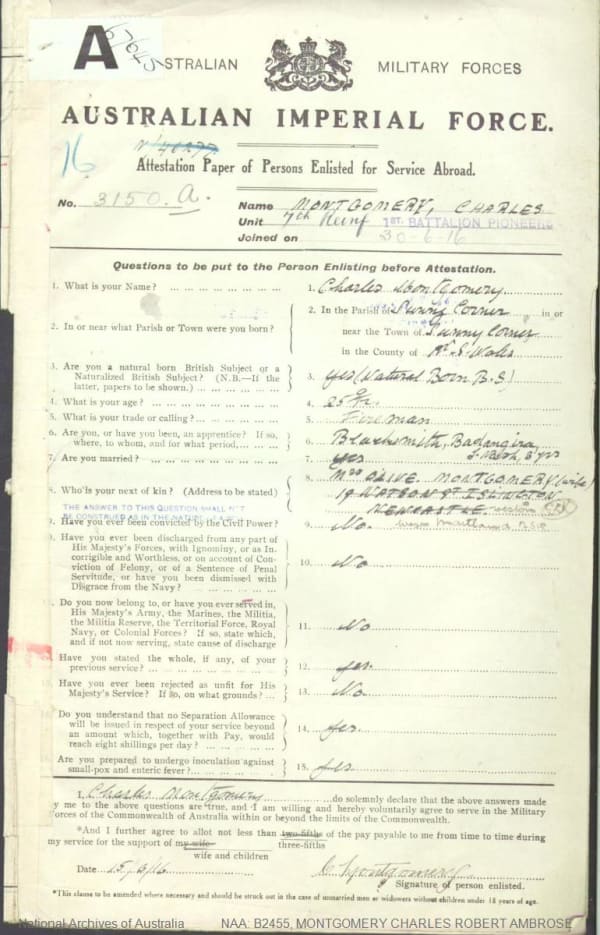 A 67645
AUSTRALIAN MILITARY FORCES
AUSTRALIAN IMPERIAL FORCE.
16
Attestation Paper of Persons Enlisted for Service Abroad.
No. 3150. A. Name MONTGOMERY, CHARLES
Unit 7th Reinf 1ST. BATTALION PIONEERS
Joined on 30-6-16
Questions to be put to the Person Enlisting before Attestation.
1. What is your Name? 1. Charles Montgomery
2. In or near what Parish or Town were you born? 2. In the Parish of Sunny Corner in or
near the Town of Sunny Corner
in the County of N. S. Wales
3. Are you a natural born British Subject or a
Naturalized British Subject? (N.B.—If the
latter, papers to be shown.) 3. Yes (Natural Born B.S)
4. What is your age? 4. 25
5. What is your trade or calling? 5. Fireman
6. Are you, or have you been, an apprentice? If so,
where, to whom, and for what period, 6. Blacksmith,
7. Are you married? 7. Yes
8. Who's your next of kin? (Address to be stated) 8. Mrs OLIVE MONTGOMERY (wife)
19 WATSON ST ISLINGTON
NEWCASTLE
THE ANSWER TO THIS QUESTION SHALL NOT
BE CONSTRUED AS IN THE NATURE
9. Have you ever been convicted by the Civil Power? 9. No West Maitland
Have you ever been discharged from any part of
His Majesty's Forces, with Ignominy, or as In-
corrigible and Worthless, or on account of Con-
viction of Felony, or of a Sentence of Penal
Servitude, or have you been dismissed with
Disgrace from the Navy? 10. No
Do you now belong to, or have you ever served in,
His Majesty's Army, the Marines, the Militia,
the Militia Reserve, the Territorial Force, Royal
Navy, or Colonial Forces? If so, state which,
and if not now serving, state cause of discharge 11. No
Have you stated the whole, if any, of your
previous service? 12. yes
Have you ever been rejected as unfit for His
Majesty's Service? If so, on what grounds? 13. No
Do you understand that no Separation Allowance
will be issued in respect of your service beyond
an amount which, together with Pay, would
reach eight shillings per day? 14. yes
Are you prepared to undergo inoculation against
small-pox and enteric fever? 15. yes
I, Charles Montgomery do solemnly declare that the above answers made
by me to the above questions are true, and I am willing and hereby voluntarily agree to serve in the Military
Forces of the Commonwealth of Australia within or beyond the limits of the Commonwealth.
*And I further agree to allot not less than two-fifths of the pay payable to me from time to time during
three-fifths
my service for the support of my wife
wife and children
Date 15.3/16 C Montgomery
Signature of person enlisted.
*This clause to be amended where necessary and should be struck out in the case of unmarried men or widowers without children under 18 years of age.
National Archives of Australia NAA: B2455, MONTGOMERY CHARLES ROBERT AMBROSE